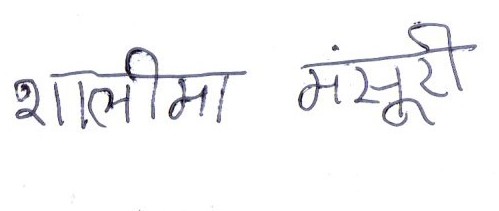 शालीमा मंसूरी